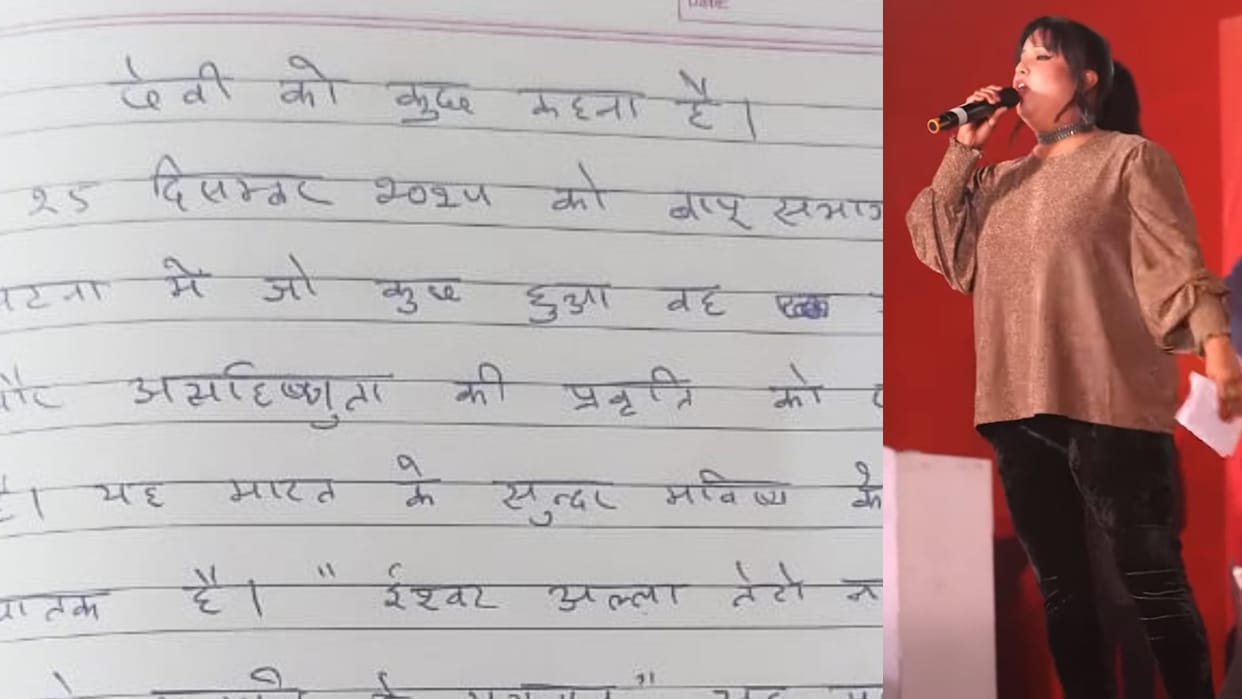 DATE
देवी को कुछ कहना है।
२5 दिसम्बर २०२५ को बापू सभाग
पटना में जो कुछ हुआ वह
और असहिष्णुता की प्रवृति को
है। यह भारत के सुन्दर भविष्य के
घातक है। " ईश्वर अल्ला तेरो